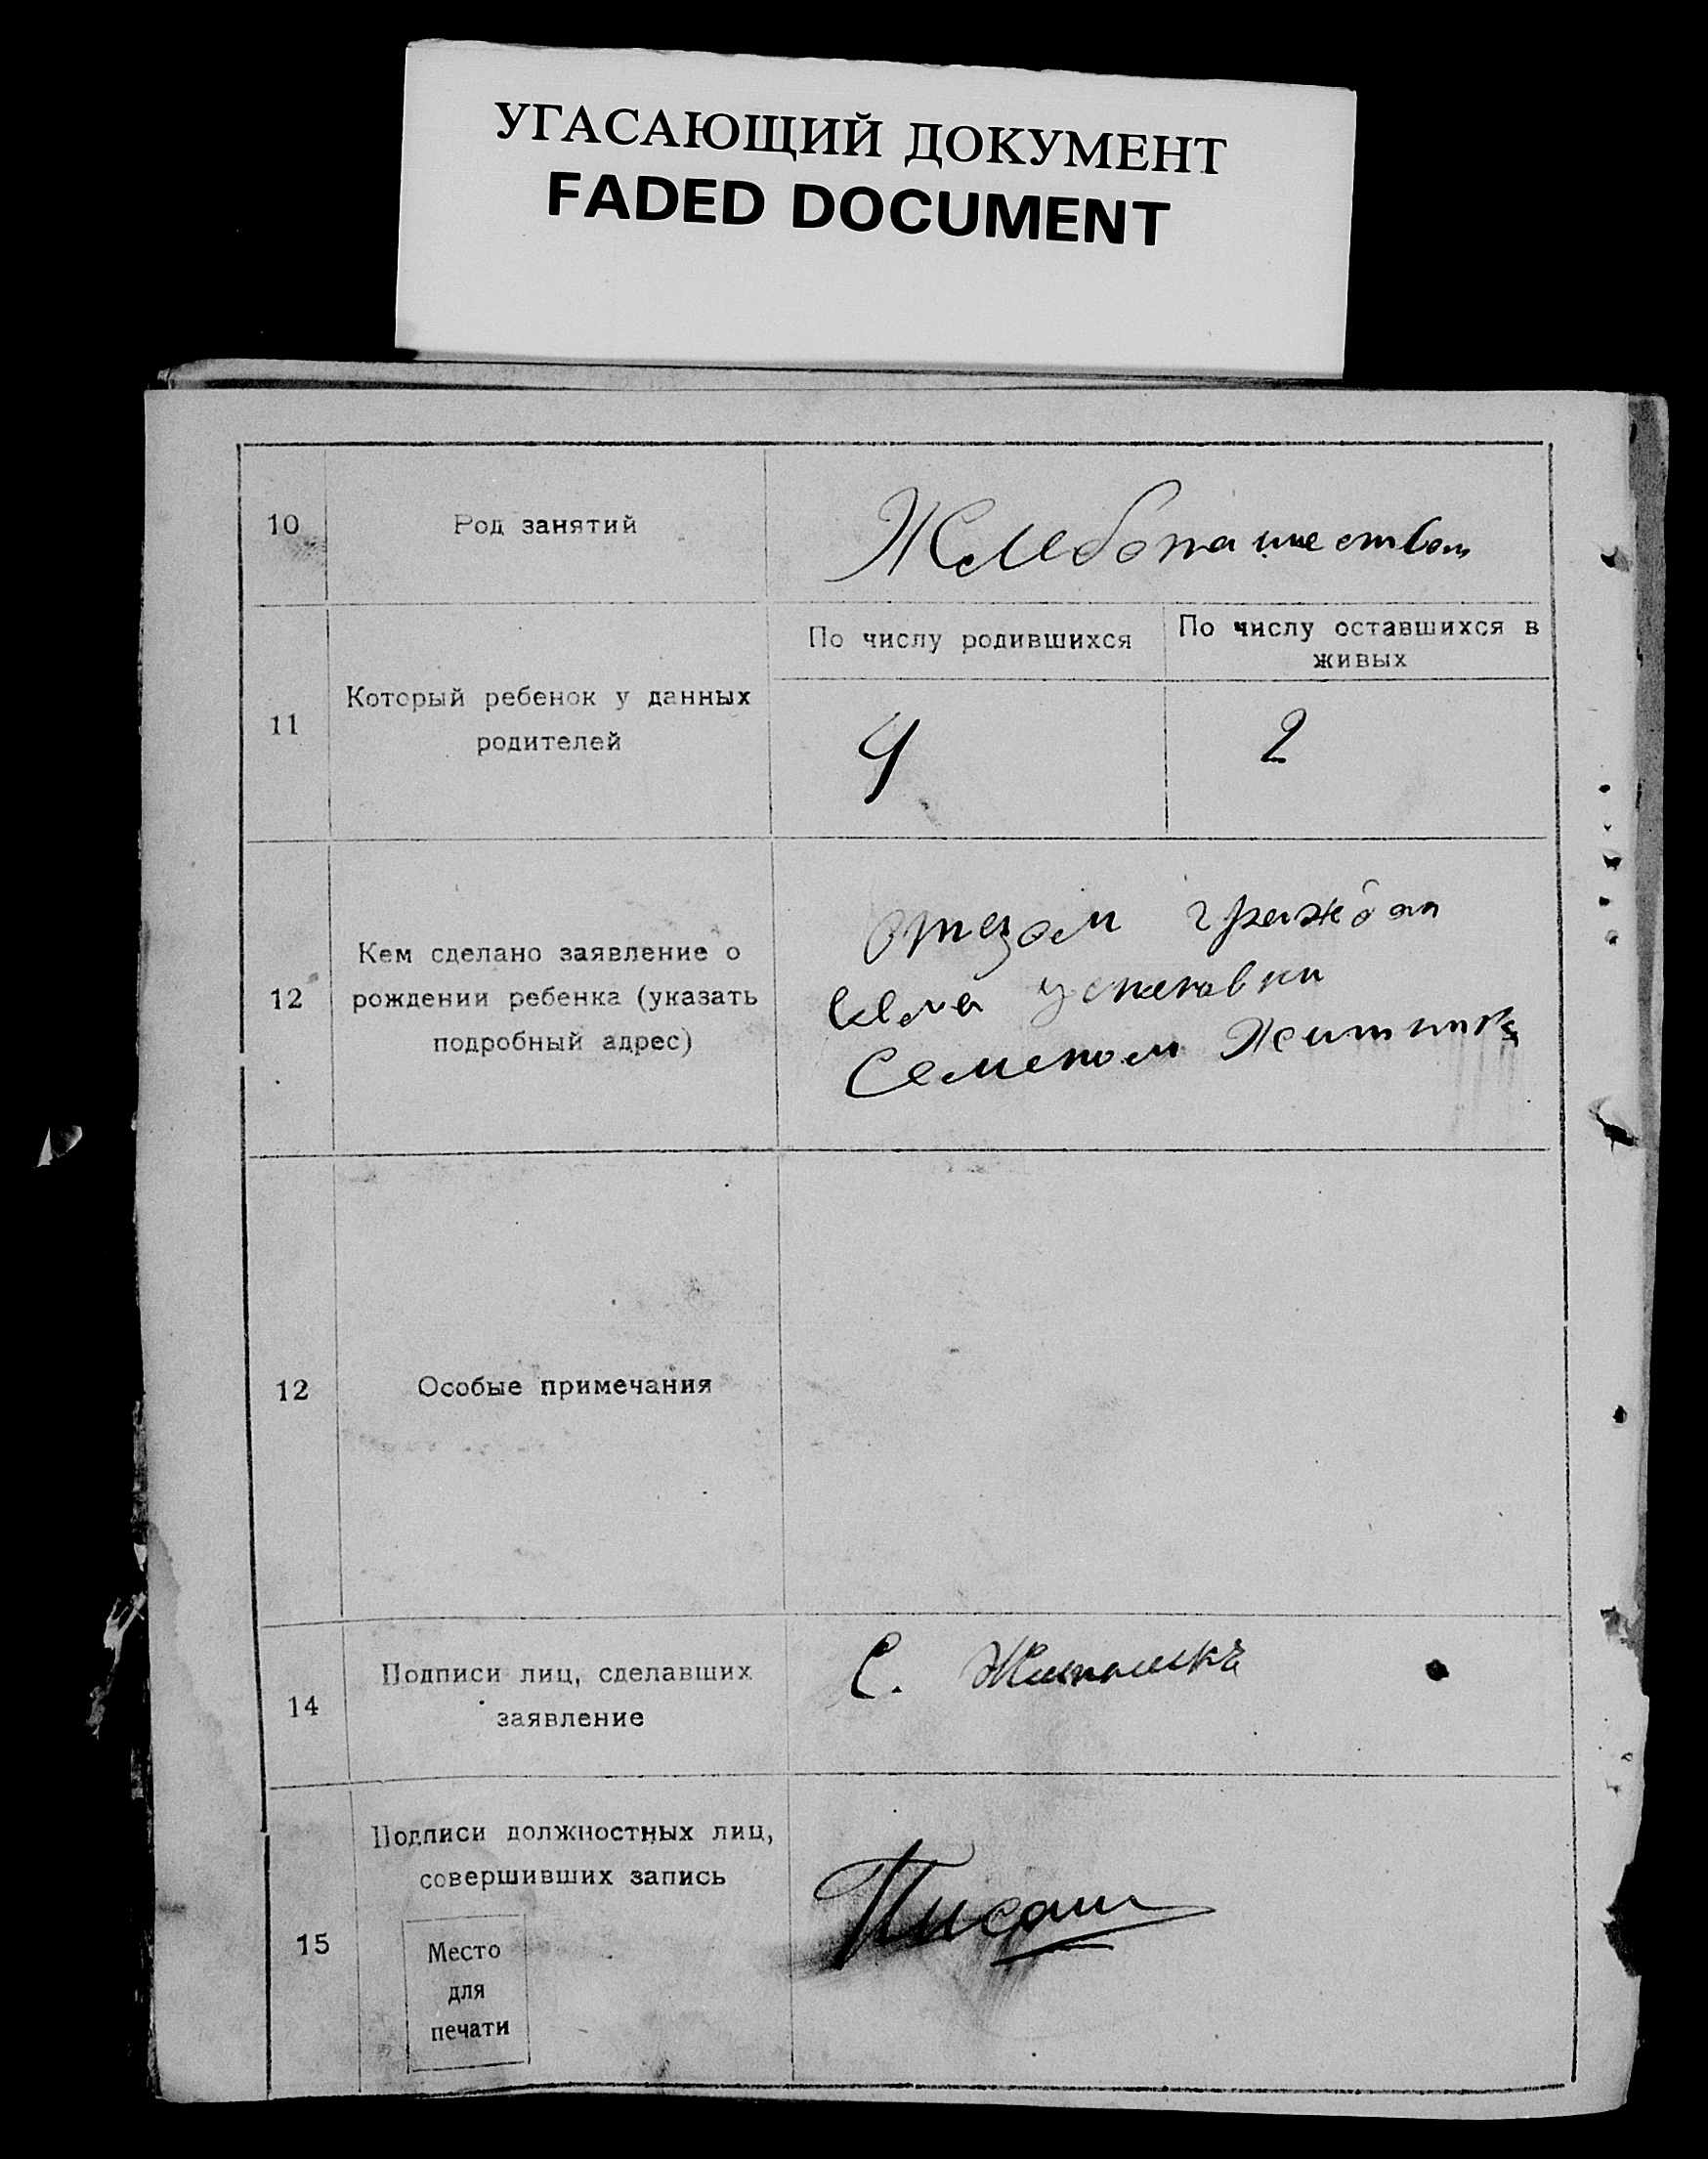 УГАСАЮЩИЙ ДОКУМЕНТ
FADED DOCUMENT
10
Род занятий
Хлебопашество
11
Который ребенок у данных
родителей
По числу родившихся
4
По числу оставшихся в
живых
2
12
Кем сделано заявление о
рождении ребенка (указать
подробный адрес)
отцом граждан
села
Семеном
12
Особые примечания
14
Подписи лиц, сделавших
заявление
С.
15
Подписи должностных лиц,
совершивших запись
Место
для
печати